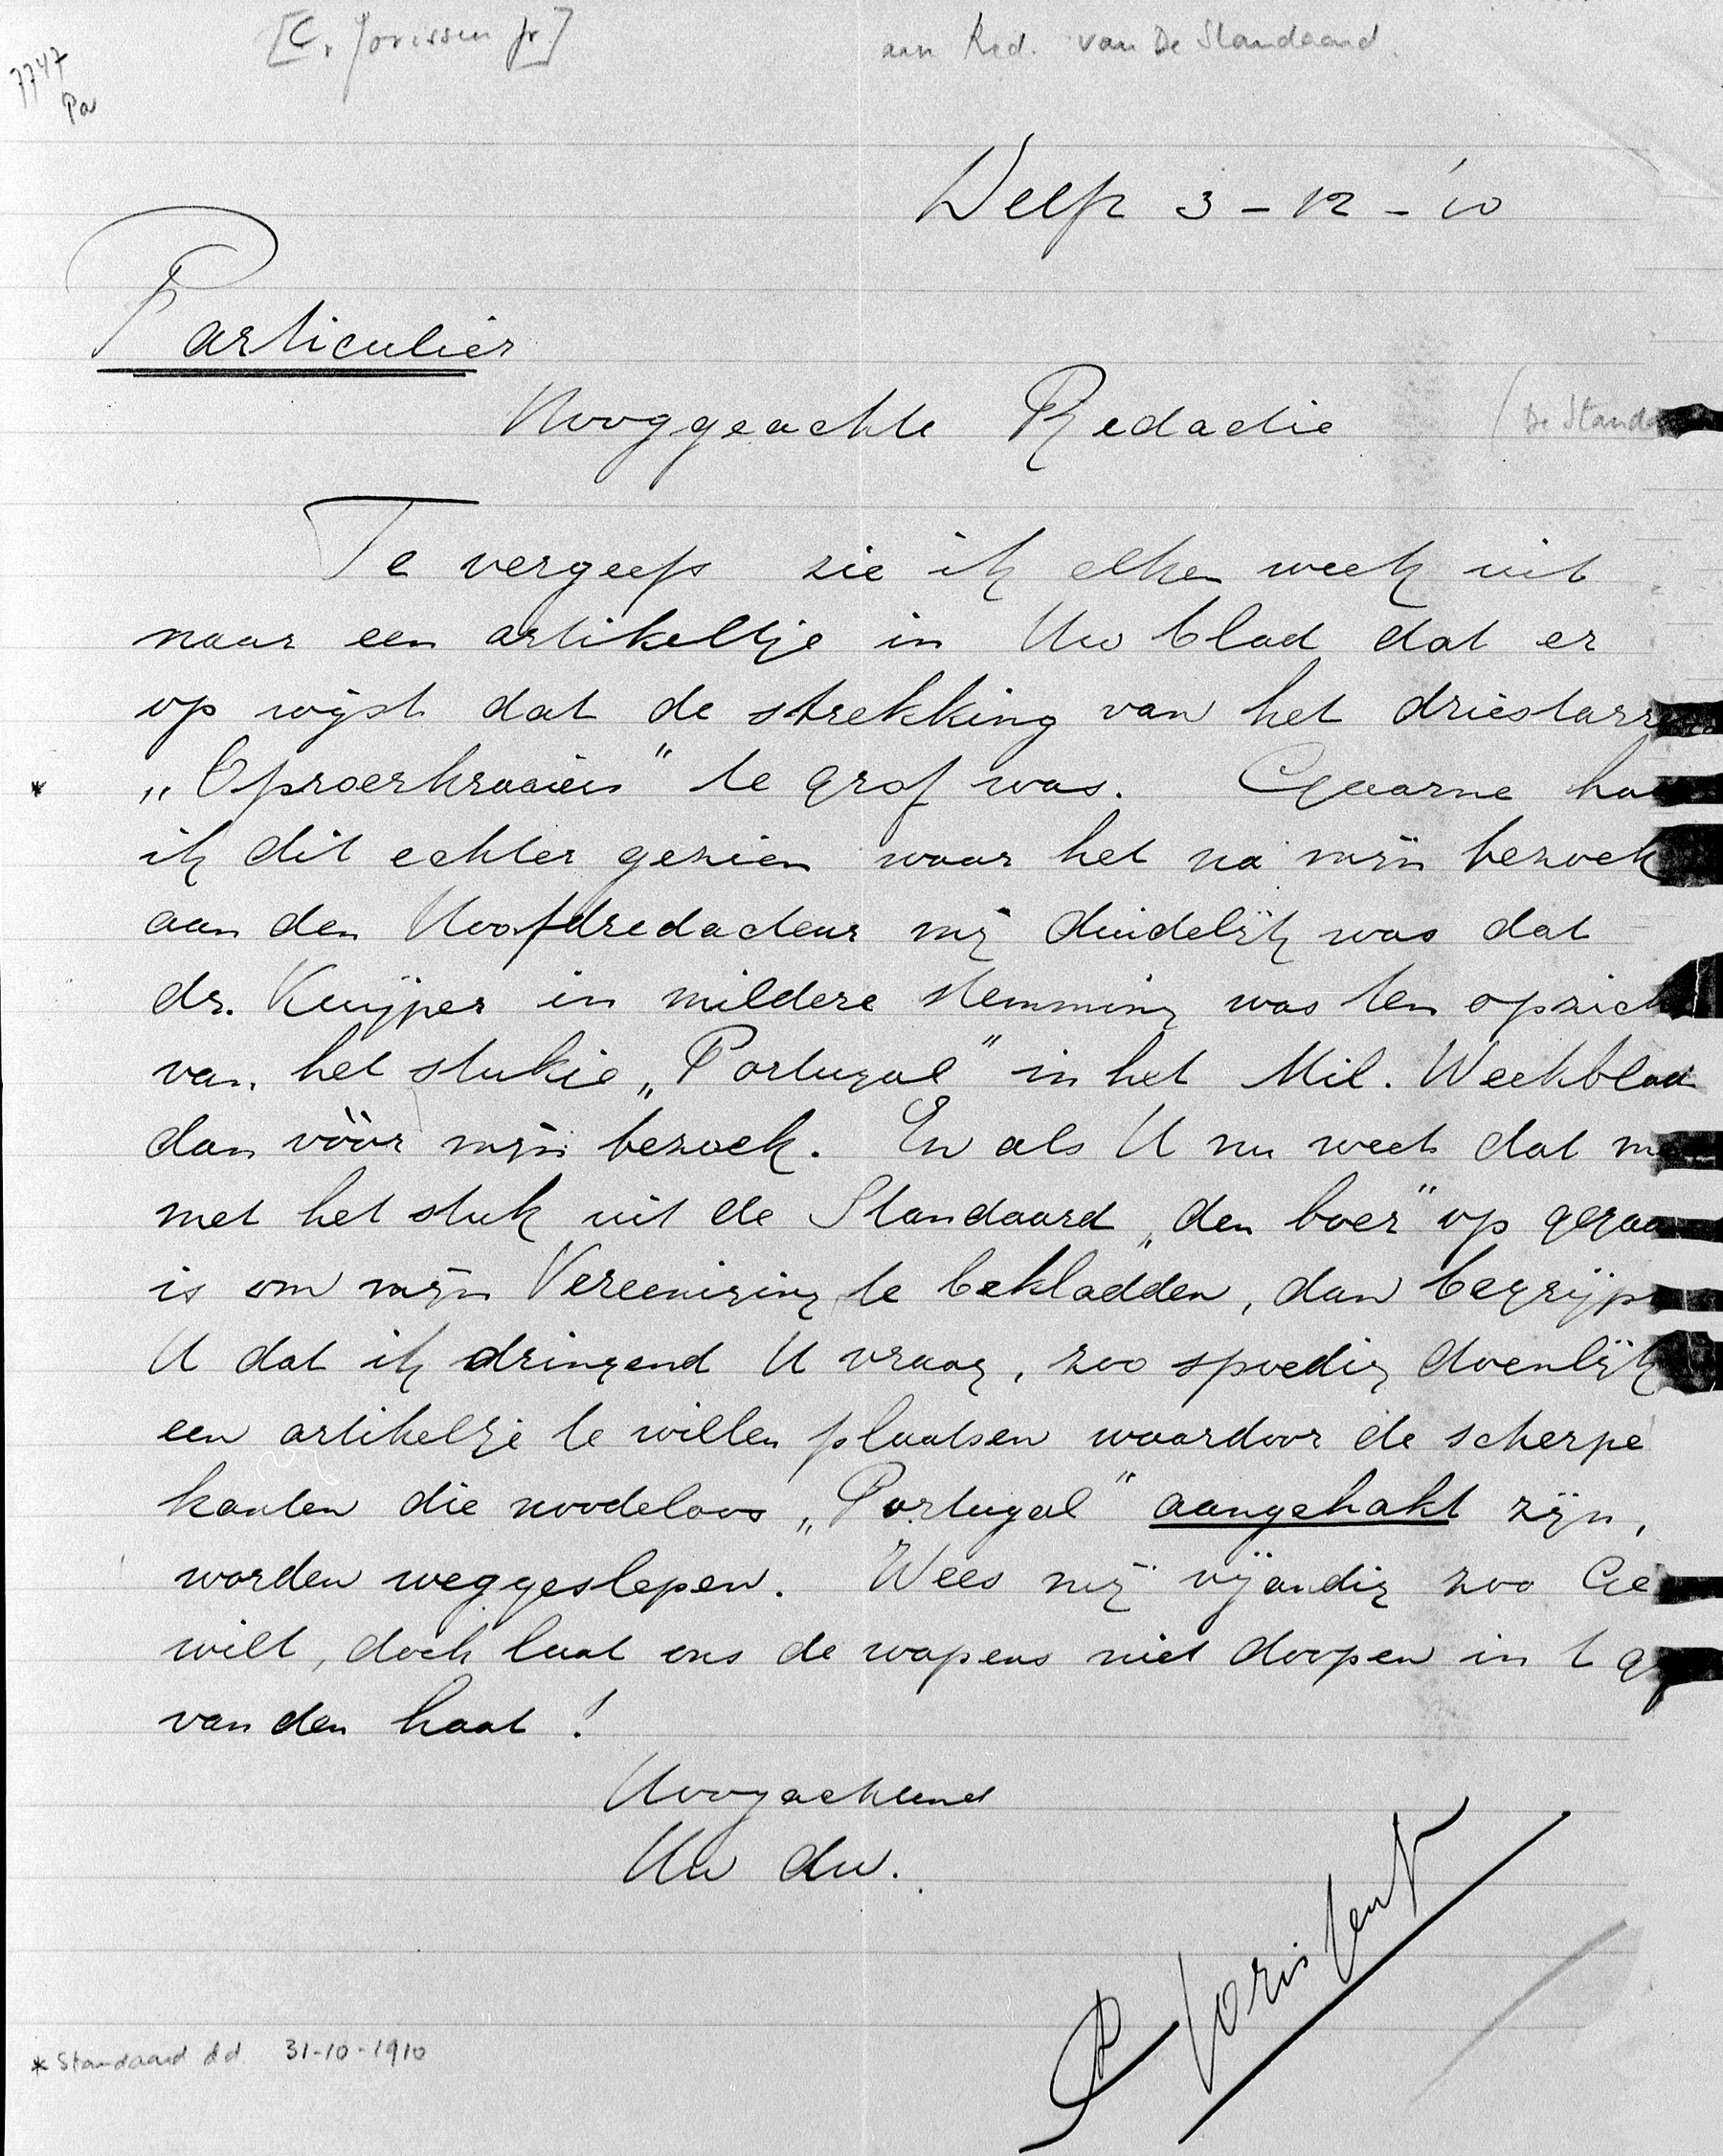 [C. Jorissen Jr]
aan Red. van De Standaard.
7747
Pa
Delft 3-12-'10
Particulier
Hooggeachte Redactie
(De Standa
Te vergeefs zie ik elken week uit
naar een artikeltje in Uw blad dat er
op wijst dat de strekking van het driestarr
* „Oproerkraaien" te grof was. Gaarne ha
ik dit echter gezien waar het na mijn bezoek
aan den Hoofdredacteur mij duidelijk was dat
dr. Kuijper in mildere stemming was ten opzich
van het stukje „Portugal" in het Mil. Weekblad
dan vóór mijn bezoek. En als U nu weet dat m
met het stuk uit de Standaard „den boer" op gegaa
is om mijn Vereeniging te bekladden, dan begrijp
U dat ik dringend U vraag, zoo spoedig doenlijk
een artikeltje te willen plaatsen waardoor de scherpe
kanten die noodeloos „Portugal" aangehakt zijn,
worden weggeslepen. Wees mij vijandig zoo Ge
wilt, doch laat ons de wapens niet doopen in t g
van den haat!
Hoogachtend
Uw dw.
Jorissen Jr
* Standaard dd. 31-10-1910